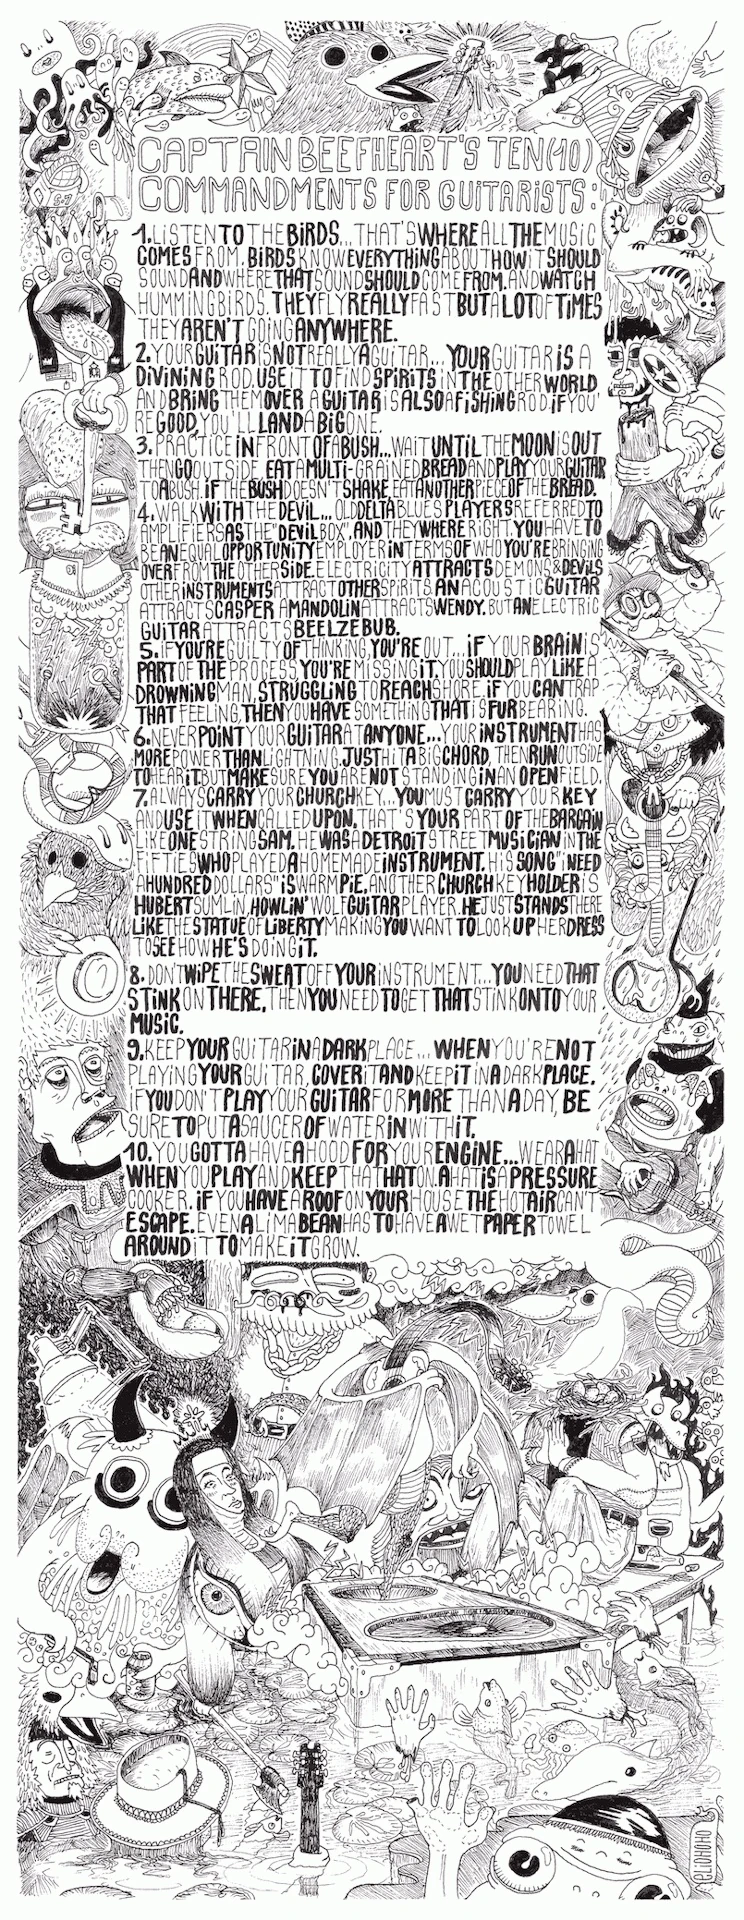 CAPTAIN BEEFHEART'S TEN(10)
COMMANDMENTS FOR GUITARISTS:
1. LISTEN TO THE BIRDS... THAT'S WHERE ALL THE MUSIC
COMES FROM. BIRDS KNOW EVERYTHING ABOUT HOW IT SHOULD
SOUND AND WHERE THAT SOUND SHOULD COME FROM. AND WATCH
HUMMINGBIRDS. THEY FLY REALLY FAST BUT A LOT OF TIMES
THEY AREN'T GOING ANYWHERE.
2. YOUR GUITAR IS NOT REALLY A GUITAR... YOUR GUITAR IS A
DIVINING ROD. USE IT TO FIND SPIRITS IN THE OTHER WORLD
AND BRING THEM OVER A GUITAR IS ALSO A FISHING ROD. IF YOU'
RE GOOD, YOU'LL LAND A BIG ONE.
3. PRACTICE IN FRONT OF A BUSH... WAIT UNTIL THE MOON IS OUT
THEN GO OUTSIDE, EAT A MULTI-GRAINED BREAD AND PLAY YOUR GUITAR
TO A BUSH. IF THE BUSH DOESN'T SHAKE, EAT ANOTHER PIECE OF THE BREAD.
4. WALK WITH THE DEVIL... OLD DELTA BLUES PLAYERS REFERRED TO
AMPLIFIERS AS THE "DEVIL BOX", AND THEY WHERE RIGHT. YOU HAVE TO
BE AN EQUAL OPPORTUNITY EMPLOYER IN TERMS OF WHO YOU'RE BRINGING
OVER FROM THE OTHER SIDE. ELECTRICITY ATTRACTS DEMONS & DEVILS
OTHER INSTRUMENTS ATTRACT OTHER SPIRITS. AN ACOUSTIC GUITAR
ATTRACTS CASPER. A MANDOLIN ATTRACTS WENDY. BUT AN ELECTRIC
GUITAR ATTRACTS BEELZEBUB.
5. IF YOU'RE GUILTY OF THINKING, YOU'RE OUT... IF YOUR BRAIN IS
PART OF THE PROCESS, YOU'RE MISSING IT. YOU SHOULD PLAY LIKE A
DROWNING MAN, STRUGGLING TO REACH SHORE. IF YOU CAN TRAP
THAT FEELING, THEN YOU HAVE SOMETHING THAT IS FUR BEARING.
6. NEVER POINT YOUR GUITAR AT ANYONE... YOUR INSTRUMENT HAS
MORE POWER THAN LIGHTNING. JUST HIT A BIG CHORD, THEN RUN OUTSIDE
TO HEAR IT. BUT MAKE SURE YOU ARE NOT STANDING IN AN OPEN FIELD.
7. ALWAYS CARRY YOUR CHURCH KEY... YOU MUST CARRY YOUR KEY
AND USE IT WHEN CALLED UPON. THAT'S YOUR PART OF THE BARGAIN
LIKE ONE STRING SAM. HE WAS A DETROIT STREET MUSICIAN IN THE
FIFTIES WHO PLAYED A HOMEMADE INSTRUMENT. HIS SONG "I NEED
A HUNDRED DOLLARS" IS WARM PIE. ANOTHER CHURCH KEY HOLDER IS
HUBERT SUMLIN, HOWLIN' WOLF GUITAR PLAYER. HE JUST STANDS THERE
LIKE THE STATUE OF LIBERTY MAKING YOU WANT TO LOOK UP HER DRESS
TO SEE HOW HE'S DOING IT.
8. DON'T WIPE THE SWEAT OFF YOUR INSTRUMENT... YOU NEED THAT
STINK ON THERE, THEN YOU NEED TO GET THAT STINK ONTO YOUR
MUSIC.
9. KEEP YOUR GUITAR IN A DARK PLACE... WHEN YOU'RE NOT
PLAYING YOUR GUITAR, COVER IT AND KEEP IT IN A DARK PLACE.
IF YOU DON'T PLAY YOUR GUITAR FOR MORE THAN A DAY, BE
SURE TO PUT A SAUCER OF WATER IN WITH IT.
10. YOU GOTTA HAVE A HOOD FOR YOUR ENGINE... WEAR A HAT
WHEN YOU PLAY AND KEEP THAT HAT ON. A HAT IS A PRESSURE
COOKER. IF YOU HAVE A ROOF ON YOUR HOUSE THE HOT AIR CAN'T
ESCAPE. EVEN A LIMA BEAN HAS TO HAVE A WET PAPER TOWEL
AROUND IT TO MAKE IT GROW.